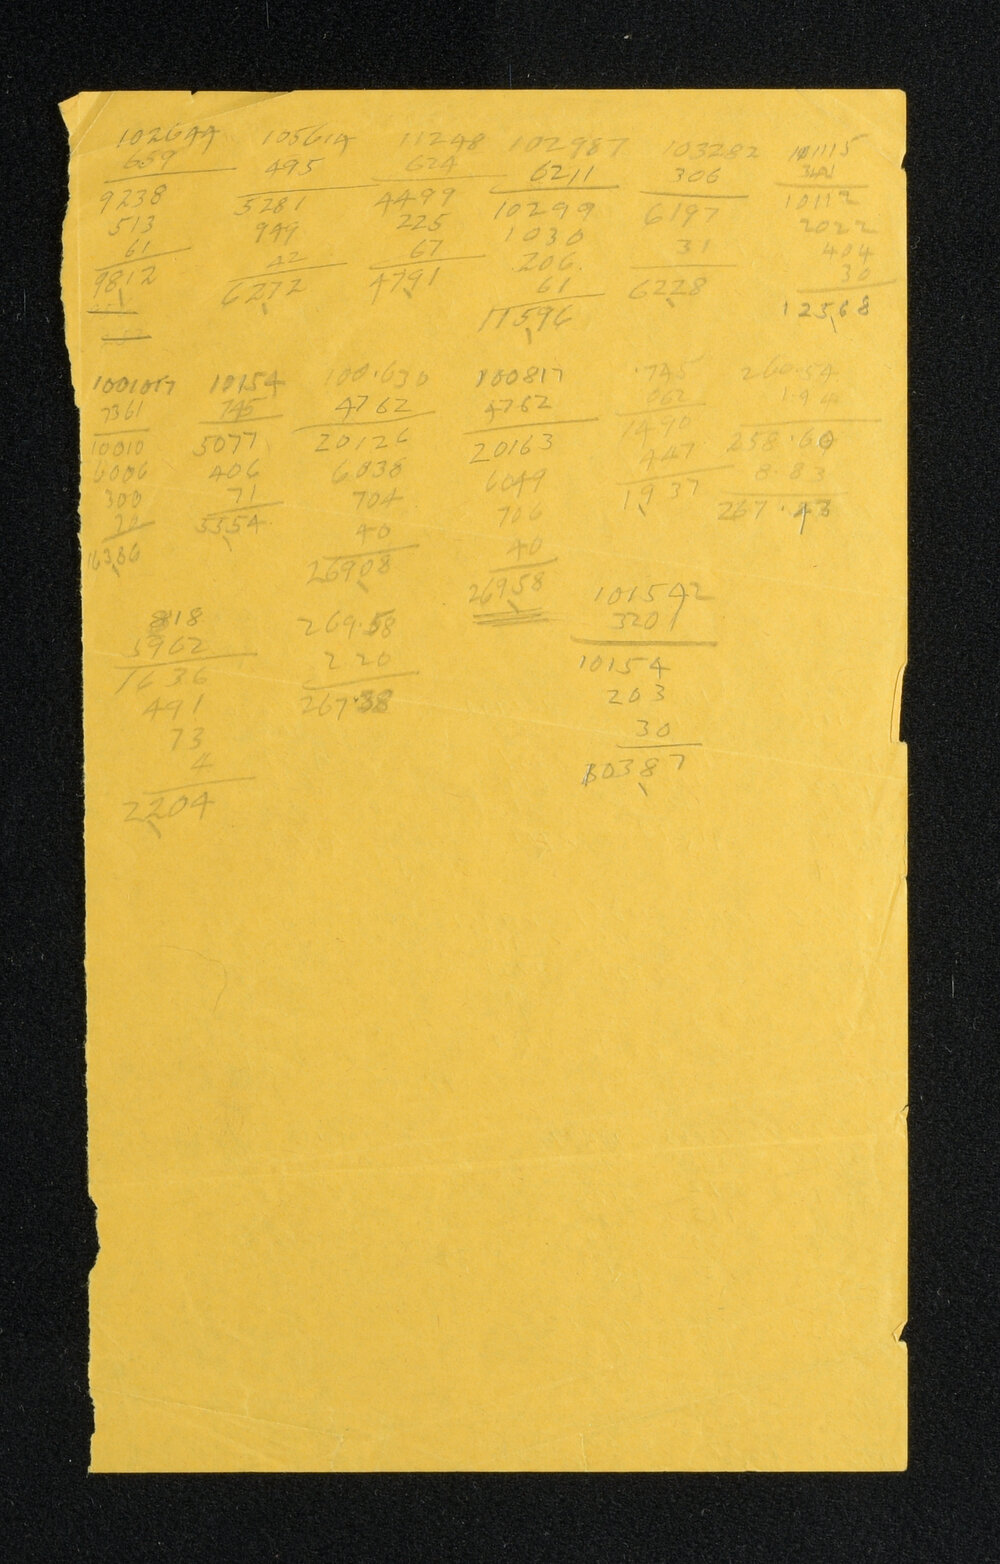 102644
659
9238
513
61
9812
105614
495
5281
949
42
6272
11248
624
4499
225
67
4791
102987
6211
10299
1030
206
61
11596
103282
306
6197
31
6228
101115
10112
2022
404
30
12568
1001017
7361
10010
6006
300
20
16386
10154
745
5077
406
71
5554
100.630
4762
20126
6038
704
40
26908
100817
4762
20163
6049
706
40
26958
.745
062
1490
447
1937
260.54
194
258.60
8.83
267.43
818
5962
1636
491
73
4
2204
269.58
220
267.38
101542
3201
10154
203
30
10387